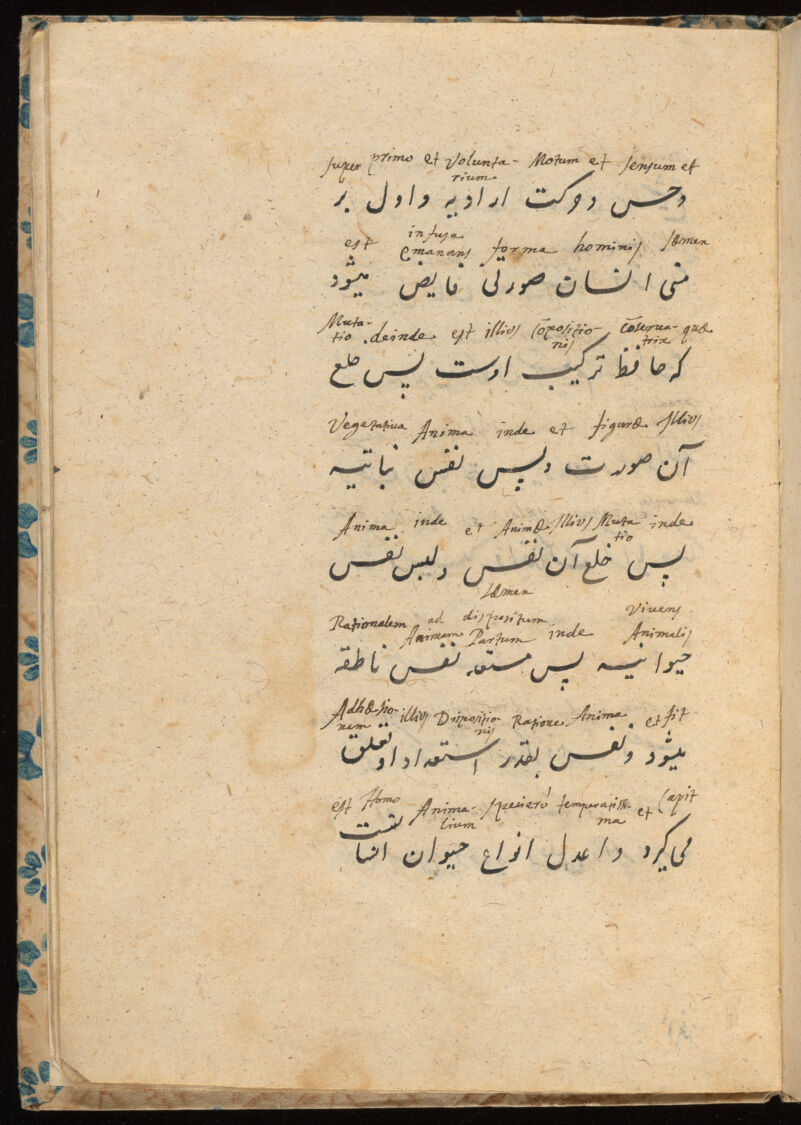 super primo et Volunta- Motum et sensum et
rium
وحس و وکت ارادیه و اول بر
est infusa emanans forma hominis sæmen
منی انسان صورتی فایض میشود
Muta- tio deinde est illius cōpositio- cōserua- quæ
nis trix
که حافظ ترکیب اوست پس خلع
Vegetatiua Anima inde et figuræ illius
آن صورت و لپس نفس نباتیه
Anima inde et Animæ illius Muta inde
tio
پس خلع آن نفس و لبس نفس
sæmen
Rationalem ad dispositum Vivens
Animam Partum inde Animalis
حیوانیه پس مستعد نفس ناطقه
Adhæsio- illius Dispositio- Ratione Anima et fit
nem nis
میشود و نفس بقدر استعداد او تعلق
est Homo Anima- specierō temperatiss. et Capit
lium ma
می کیرد و اعدل انواع حیوان انسانست